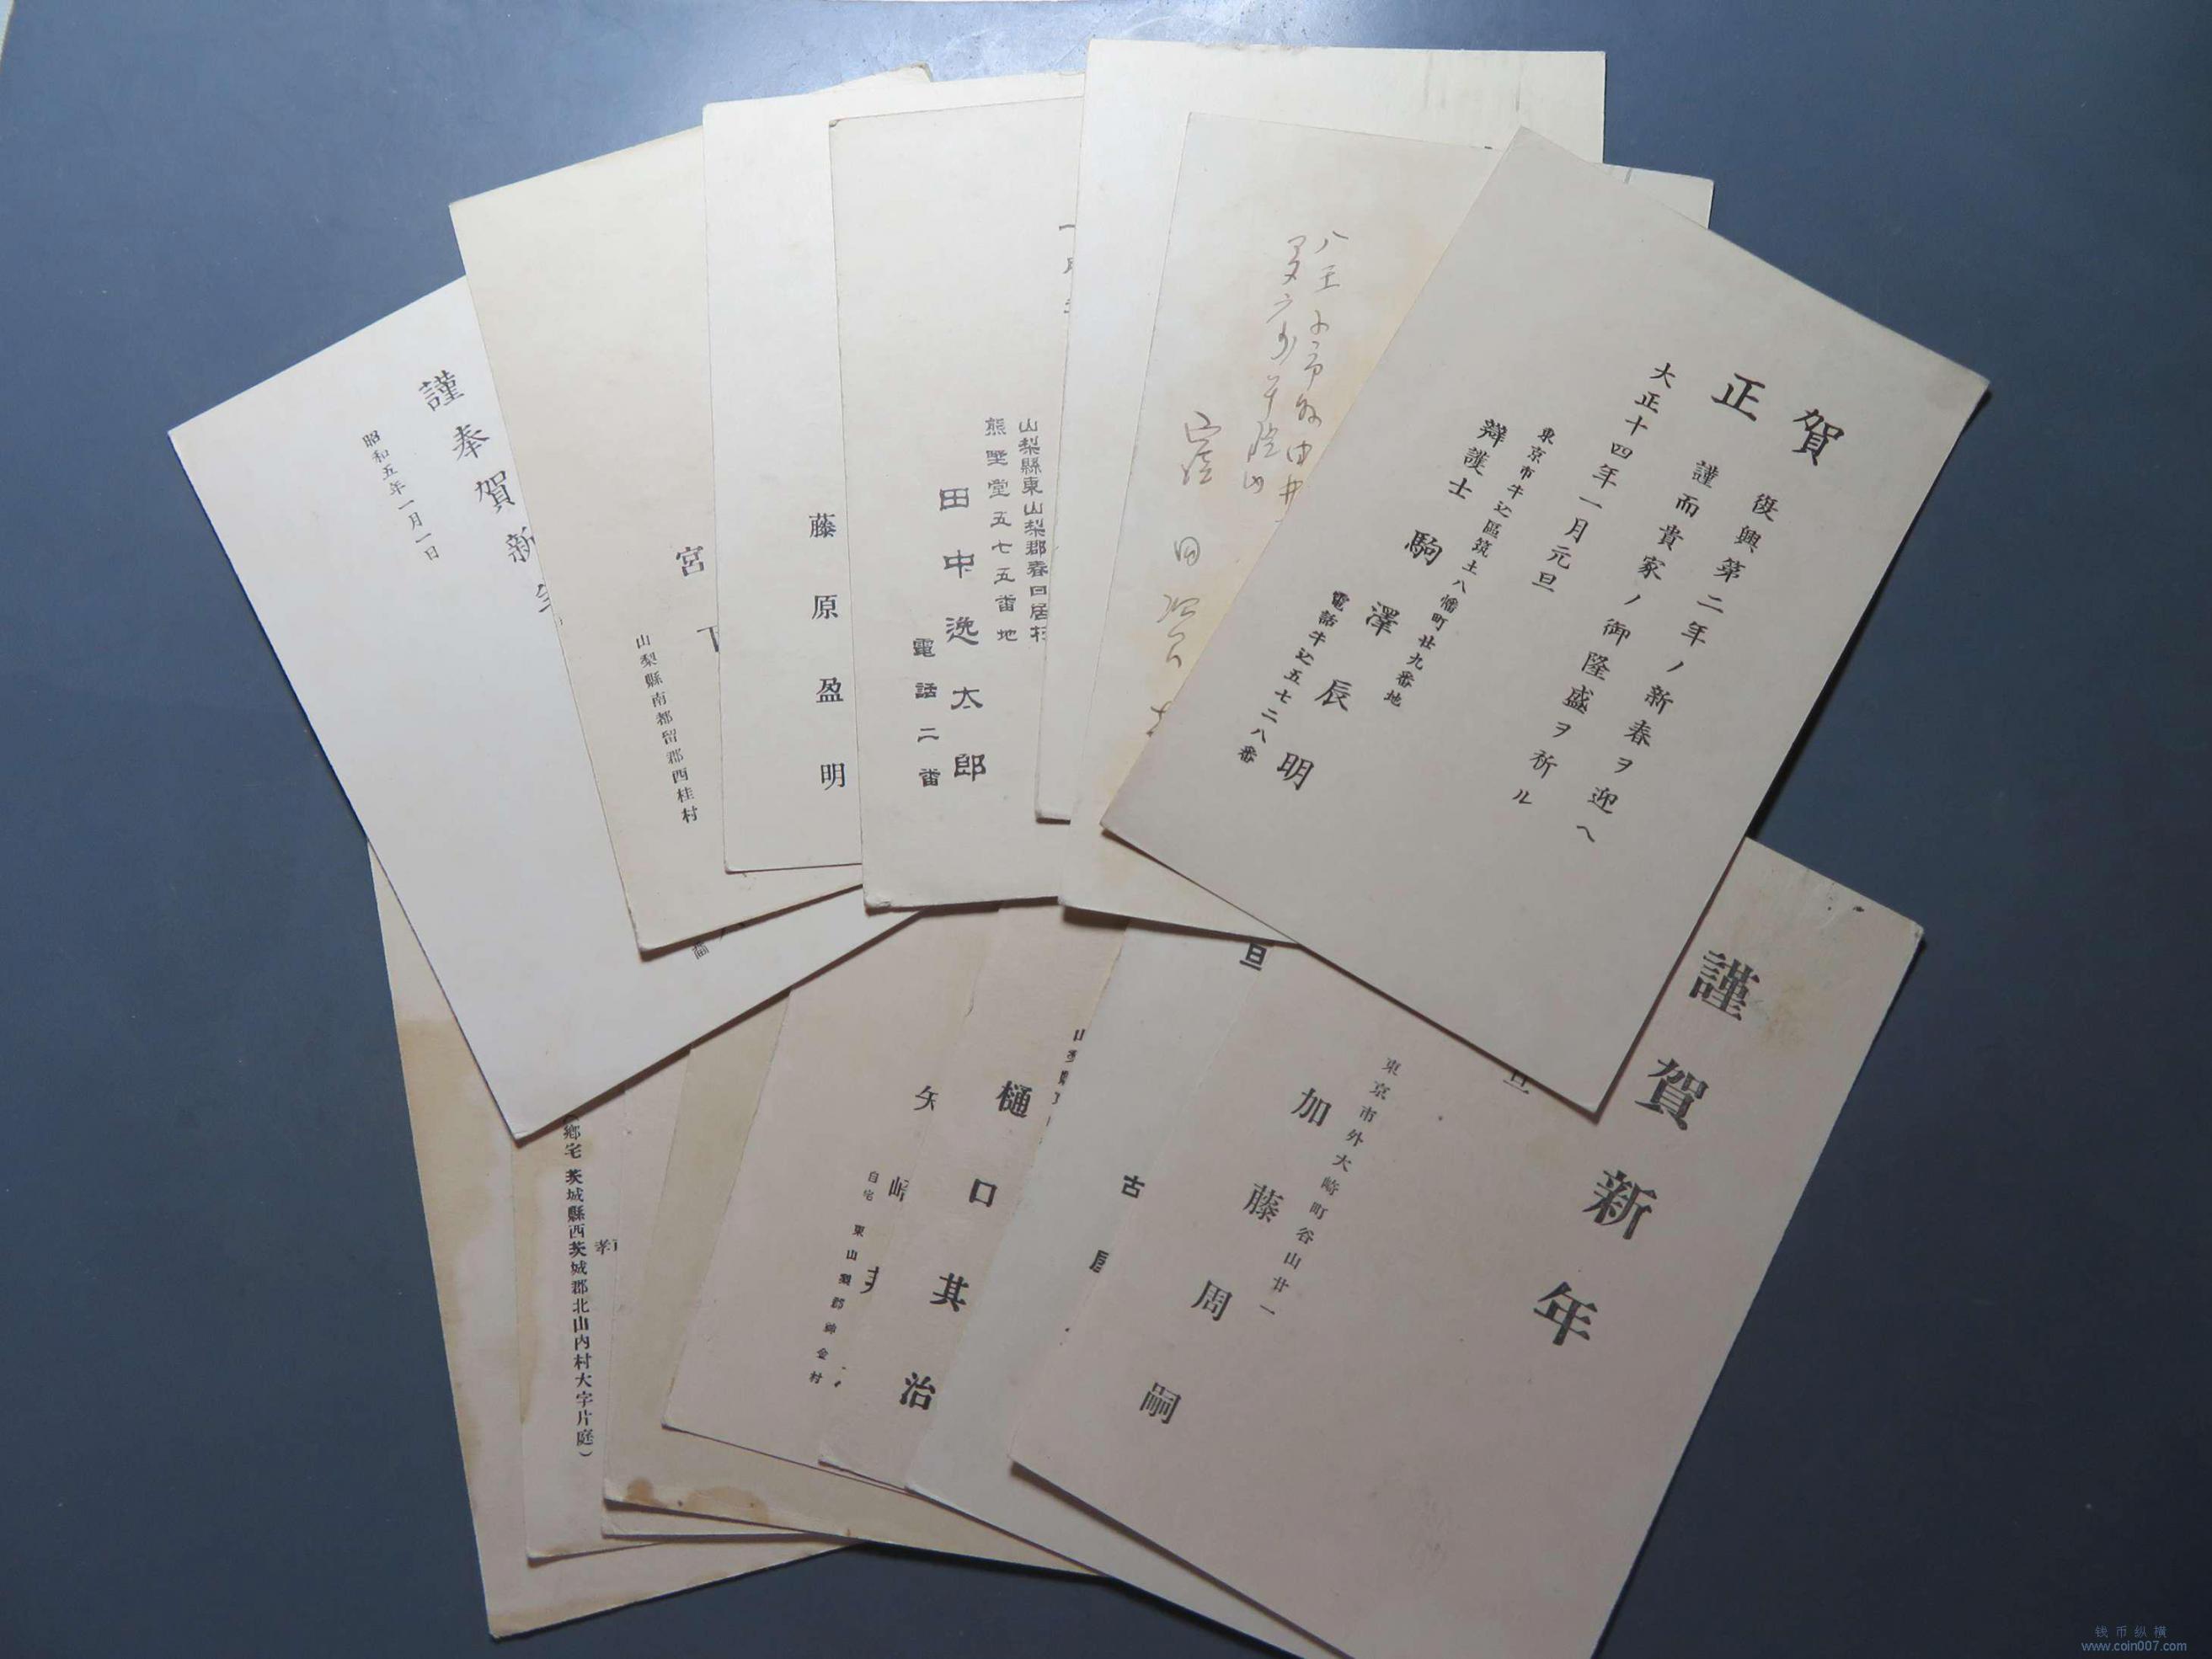 賀正
復興第二年ノ新春ヲ迎ヘ
謹而貴家ノ御隆盛ヲ祈ル
大正十四年一月元旦
東京市牛込區筑土八幡町廿九番地
辯護士 駒澤辰明
電話牛込五七二八番
八王子市
山梨縣東山梨郡春日居村
熊埜堂五七五番地
田中逸太郎
電話二番
藤原盈明
宮下
山梨縣南都留郡西桂村
謹奉賀新年
昭和五年一月一日
謹賀新年
旦
東京市外大崎町谷山廿一
加藤周嗣
旦
古屋
樋口其治
矢崎
自宅 東山梨郡神金村
(鄉宅 茨城縣西茨城郡北山内村大字片庭)
钱币纵横
www.coin007.com